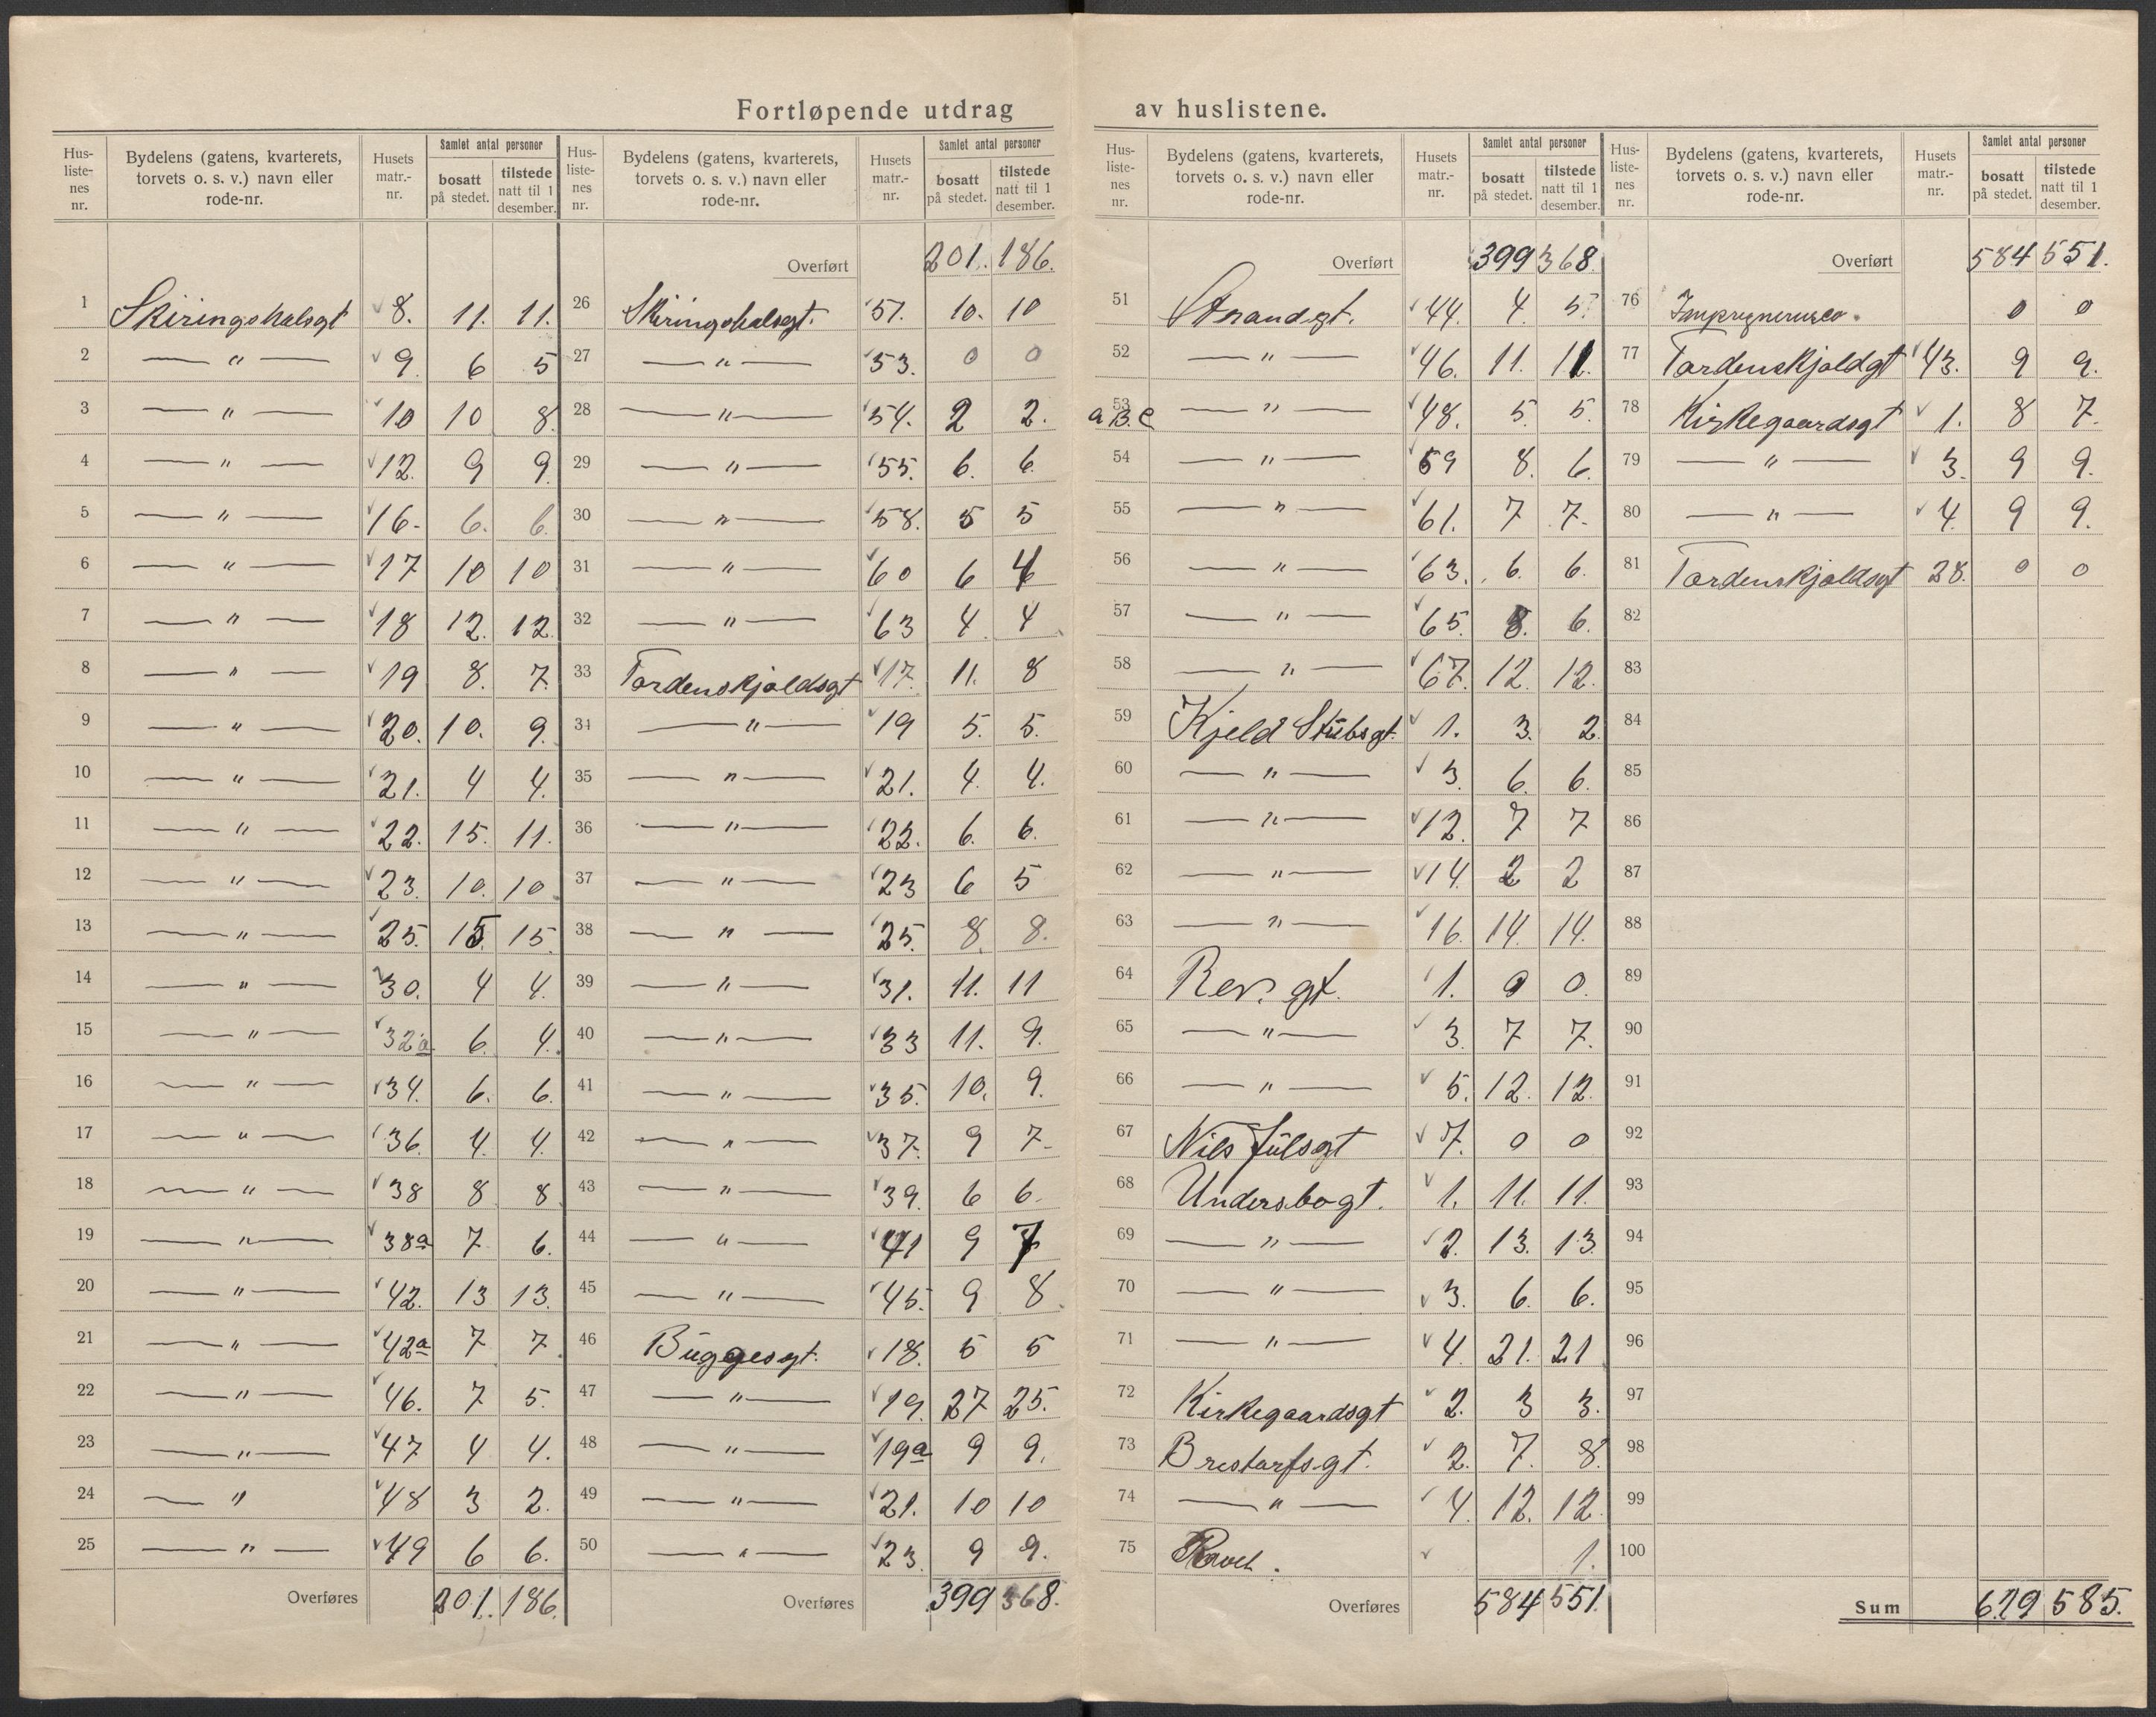 Fortløpende utdrag av huslistene.
Hus-listenes nr. | Bydelens (gatens, kvarterets, torvets o. s. v.) navn eller rode-nr. | Husets matr.-nr. | Samlet antal personer bosatt på stedet. | tilstede natt til 1 desember.
1 Skiringshalsgt 8. 11. 11.
2 — " — 9. 6 5
3 — " — 10 10 8.
4 — " — 12. 9 9.
5 — " — 16. 6. 6.
6 — " — 17 10 10
7 — " — 18 12. 12.
8 — " — 19 8. 7.
9 — " — 20. 10. 9.
10 — " — 21. 4 4.
11 — " — 22. 15. 11.
12 — " — 23. 10. 10
13 — " — 25. 15. 15.
14 — " — 30. 4 4.
15 — " — 32a 6. 4.
16 — " — 34. 6. 6.
17 — " — 36. 4. 4.
18 — " — 38 8 8.
19 — " — 38a 7 6.
20 — " — 42. 13 13.
21 — " — 42a 7 7
22 — " — 46. 7 5.
23 — " — 47 4 4.
24 — " 48 3 2.
25 — " — 49 6 6.
Overføres 201. 186.
Hus-listenes nr. | Bydelens (gatens, kvarterets, torvets o. s. v.) navn eller rode-nr. | Husets matr.-nr. | Samlet antal personer bosatt på stedet. | tilstede natt til 1 desember.
Overført 201. 186.
26 Skiringshalsgt. 51. 10. 10
27 — " — 53. 0 0
28 — " — 54. 2 2.
29 — " — 55. 6. 6.
30 — " — 58. 5 5
31 — " — 60 6 4
32 — " — 63 4. 4
33 Tordenskjoldsgt 17. 11. 8
34 — " — 19 5. 5.
35 — " — 21. 4. 4.
36 — " — 22. 6. 6.
37 — " — 23 6 5
38 — " — 25. 8. 8.
39 — " — 31. 11. 11
40 — " — 33 11. 9.
41 — " — 35. 10. 9.
42 — " — 37. 9 7-
43 — " — 39. 6 6.
44 — " — 41 9 7
45 — " — 45. 9 8.
46 Buggesgt. 18. 5 5
47 — " — 19. 27 25.
48 — " — 19a 9 9.
49 — " — 21. 10 10
50 — " — 23. 9 9.
Overføres 399 368.
Hus-listenes nr. | Bydelens (gatens, kvarterets, torvets o. s. v.) navn eller rode-nr. | Husets matr.-nr. | Samlet antal personer bosatt på stedet. | tilstede natt til 1 desember.
Overført 399 368.
51 Strandgt. 44. 4. 5.
52 — " — 46. 11. 11.
53 a.B.C — " — 48. 5. 5.
54 — " — 59 8. 6.
55 — " — 61. 7 7.
56 — " — 63. 6. 6.
57 — " — 65. 8. 6.
58 — " — 67. 12. 12.
59 Kjeld Stubsgt. 1. 3. 2.
60 — " — 3. 6. 6.
61 — " — 12. 7 7
62 — " — 14. 2 2
63 — " — 16. 14. 14.
64 Rev. gt. 1. 0 0.
65 — " — 3. 7 7.
66 — " — 5. 12. 12.
67 Nils Julsgt 7. 0 0
68 Undersbogt. 1. 11. 11.
69 — " — 2. 13. 13.
70 — " — 3. 6. 6.
71 — " — 4. 21. 21
72 Kirkegaardsgt 2. 3 3.
73 Brestorfsgt. 2. 7. 8.
74 — " — 4. 12. 12.
75 1.
Overføres 584 551.
Hus-listenes nr. | Bydelens (gatens, kvarterets, torvets o. s. v.) navn eller rode-nr. | Husets matr.-nr. | Samlet antal personer bosatt på stedet. | tilstede natt til 1 desember.
Overført 584 551.
76 0 0
77 Tordenskjoldgt 43. 9 9.
78 Kirkegaardsgt 1. 8 7.
79 — " — 3. 9 9.
80 — " — 4. 9 9.
81 Tordenskjoldsgt 28. 0 0
82
83
84
85
86
87
88
89
90
91
92
93
94
95
96
97
98
99
100
Sum 619 585.